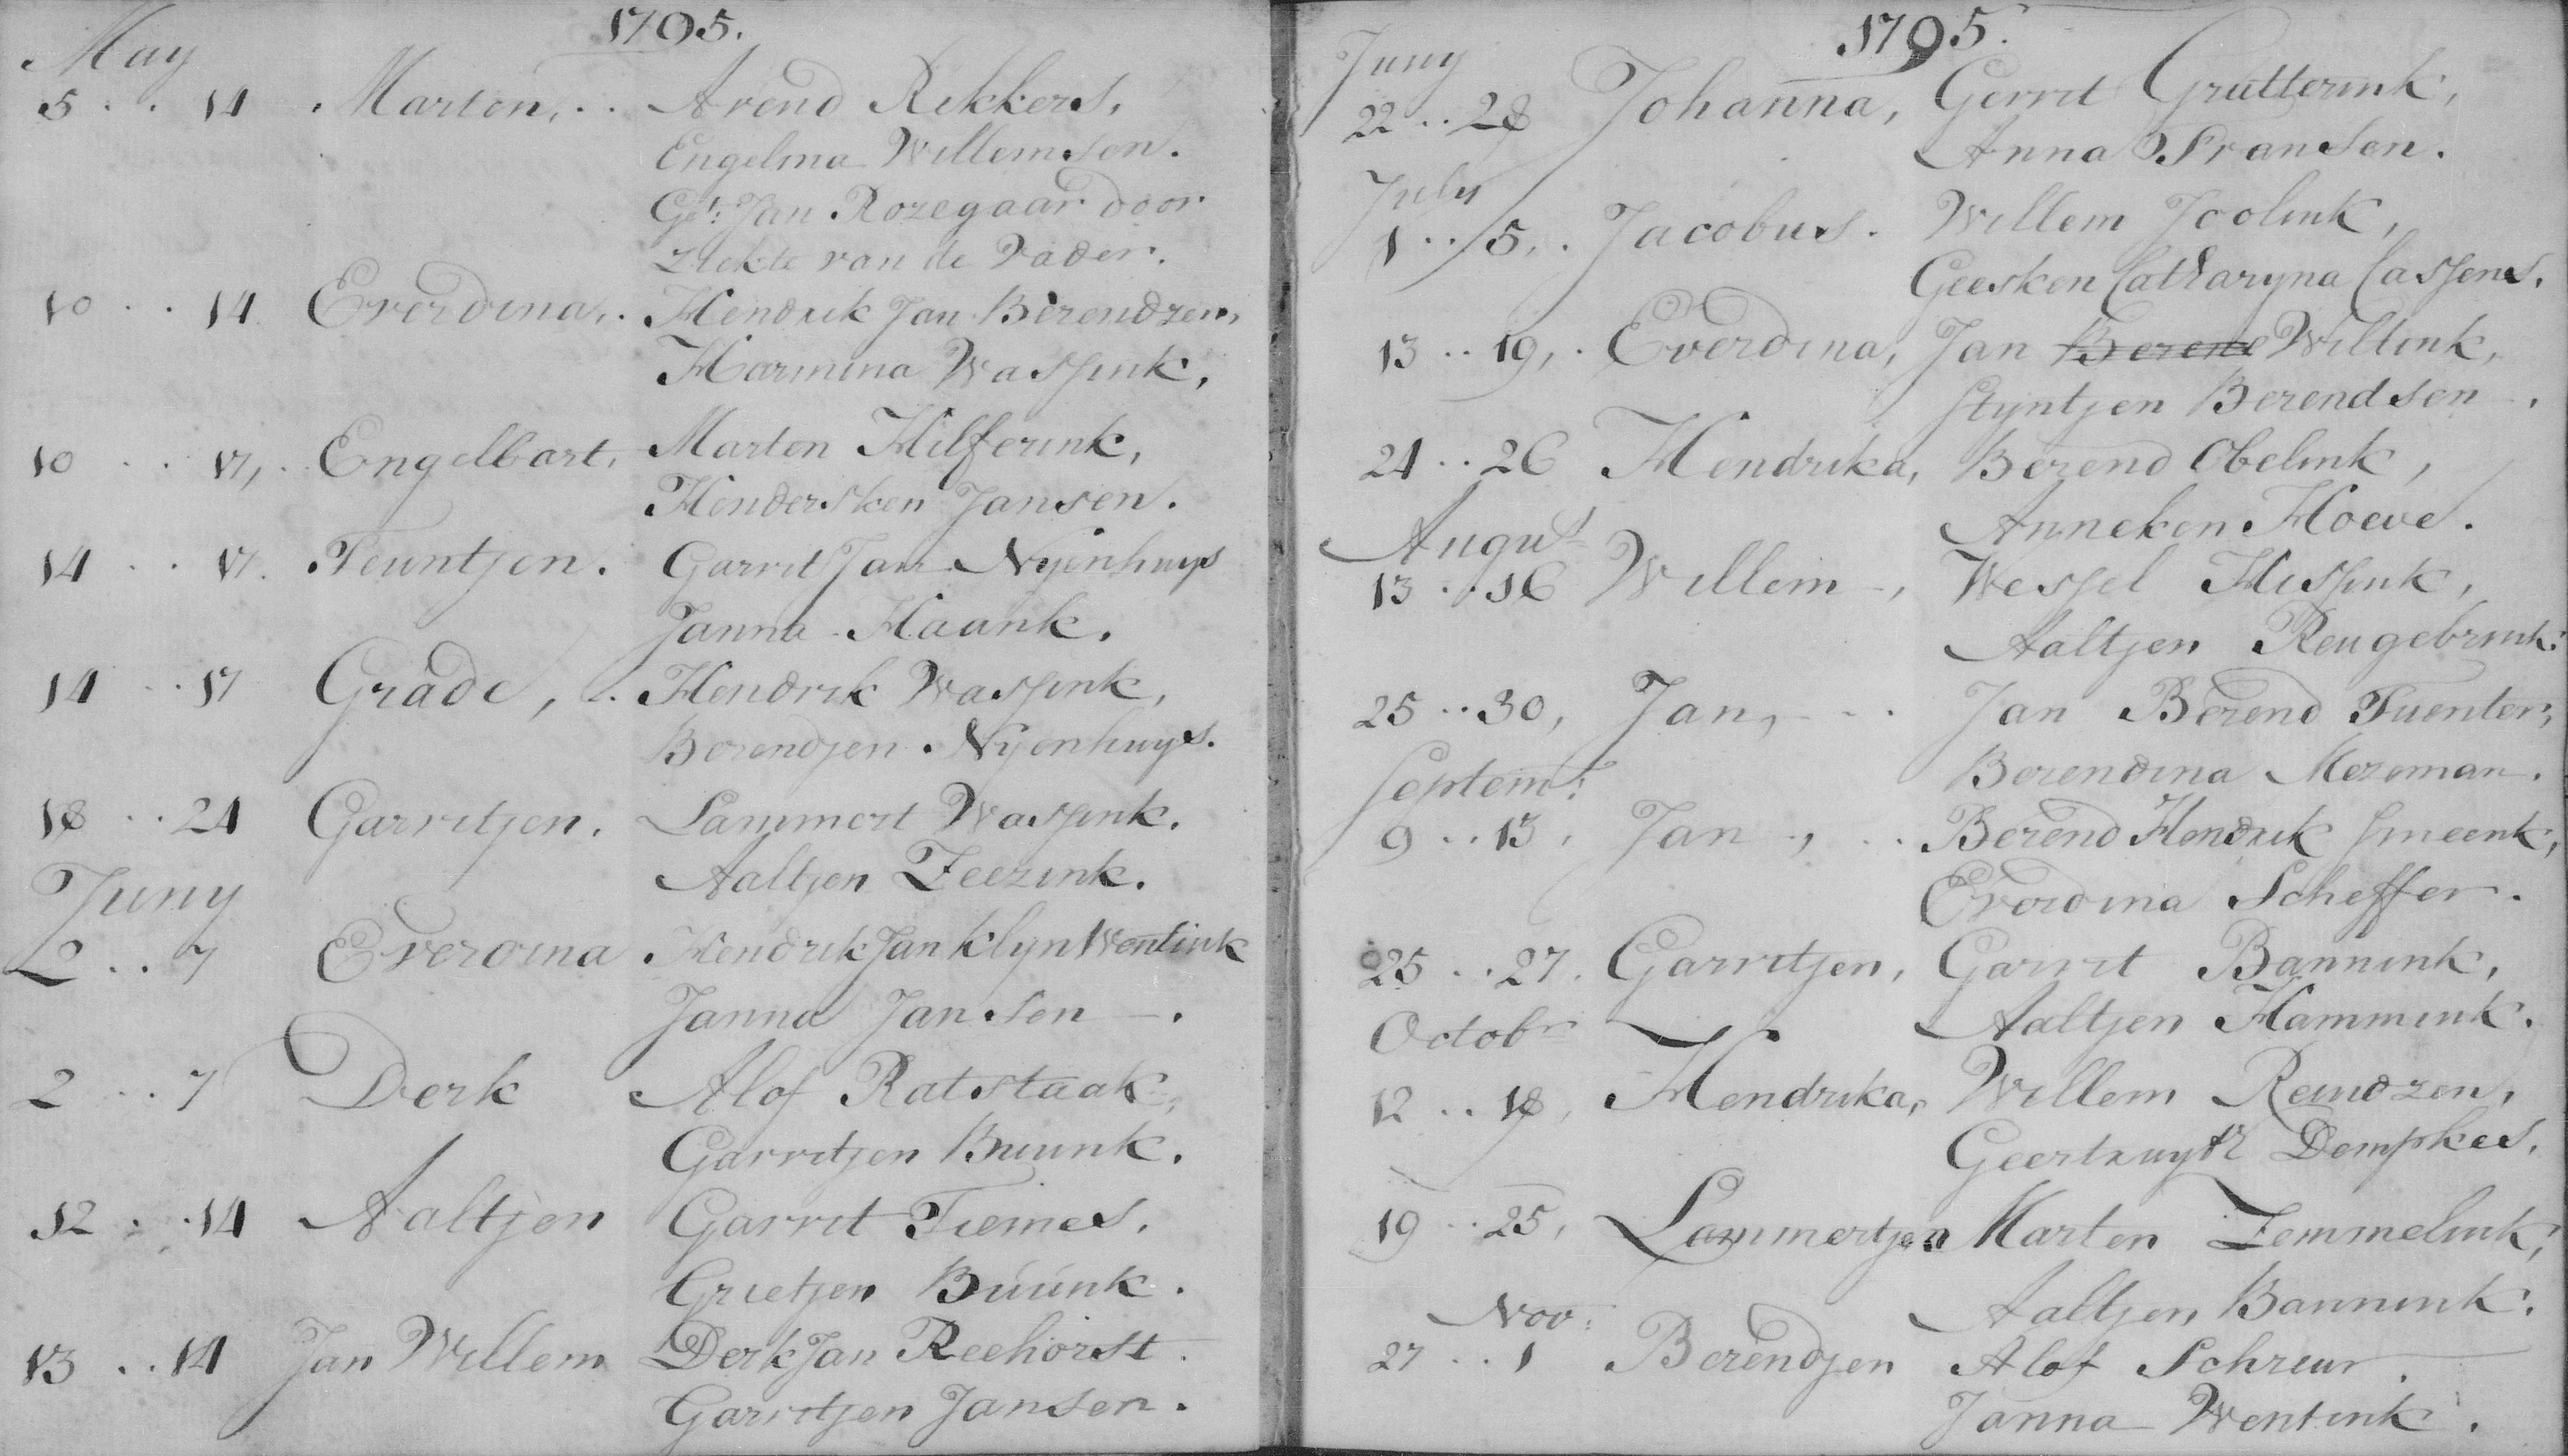 1795.
May
5 .. 14 Marten, .. Arend Rekkers,
Engelina Willemsen.
Get: Jan Rozegaar door
ziekte van de Vader.
10 .. 14 Everdina, . Hendrik Jan Berendzen,
Harmina Wassink,
10 .. 17, . Engelbart, Marten Hilferink,
Hendersken Jansen.
14 .. 17. Teuntjen. Garrit Jan Nyenhuys
Janna Haank.
14 .. 17 Grade, . Hendrik Wassink,
Berendjen Nyenhuys.
18 .. 24 Garritjen. Lammert Wassink.
Aaltjen Zeezink.
Juny
2 .. 7 Everdina Hendrik Jan Klyn Wentink
Janna Jansen - .
2 .. 7 Derk Alof Ratstaak,
Garritjen Buunk.
12 .. 14 Aaltjen Garrit Tiemes.
Grietjen Buunk.
13 .. 14 Jan Willem Derk Jan Reehorst.
Garritjen Jansen.
1795.
Juny
22 .. 28 Johanna, Gerrit Grutterink,
Anna Fransen.
July
1 .. 5, . Jacobus. Willem Joolink,
Geesken Catharyna Cassens.
13 .. 19, . Everdina, Jan Berend Willink,
Styntjen Berendsen - .
24 .. 26 Hendrika, Berend Obelink,
Anneken Hoeve.
August
13 .. 16 Willem -, Wessel Hissink,
Aaltjen Reugebrink.
25 .. 30, Jan, - - . Jan Berend Tuenter,
Berendina Mezeman.
Septem:
9 .. 13, Jan -, .. Berend Hendrik Smeenk,
Everdina Scheffer.
25 .. 27. Garritjen, Garrit Bannink,
Aaltjen Hammink.
Octobr
12 .. 18, Hendrika, Willem Remdzen,
Geertruyt Dempkes.
19 .. 25, Lammertjen Marten Zemmelink,
Aaltjen Bannink.
Nov:
27 .. 1 Berendjen Alof Schreur.
Janna Wentink.